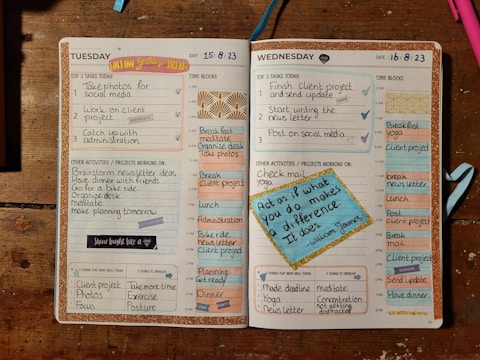 TUESDAY
DATE: 15·8·23
TOP 3 TASKS TODAY
1 Take photos for
social media
2 Work on client
project
3 Catch up with
administration
OTHER ACTIVITIES / PROJECTS WORKING ON:
Brainstorm newsletter ideas
Have dinner with friends
Go for a bike ride
Organize desk
meditate
make planning tomorrow
3 THINGS THAT WENT WELL TODAY
Client project
Photos
Focus
3 THINGS TO IMPROVE
Take more time
Exercise
Posture
TIME BLOCKS
Breakfast
meditate
Organize desk
Take photos
Break
Client project
Lunch
Administration
Bike ride
newsletter
Client project
Planning
Get ready
Dinner
WEDNESDAY
DATE: 16·8·23
TOP 3 TASKS TODAY
1 Finish client project
and send update
2 Start writing the
newsletter
3 Post on social media
OTHER ACTIVITIES / PROJECTS WORKING ON:
Check mail
yoga
Act as if what
you do makes
a difference
It does
William James
3 THINGS THAT WENT WELL TODAY
Made deadline
Yoga
Newsletter
3 THINGS TO IMPROVE
meditate
Concentration
not getting
distracted
TIME BLOCKS
Breakfast
yoga
Client project
break
newsletter
Lunch
Post
Client project
Break
mail
Client project
Send update
Have dinner